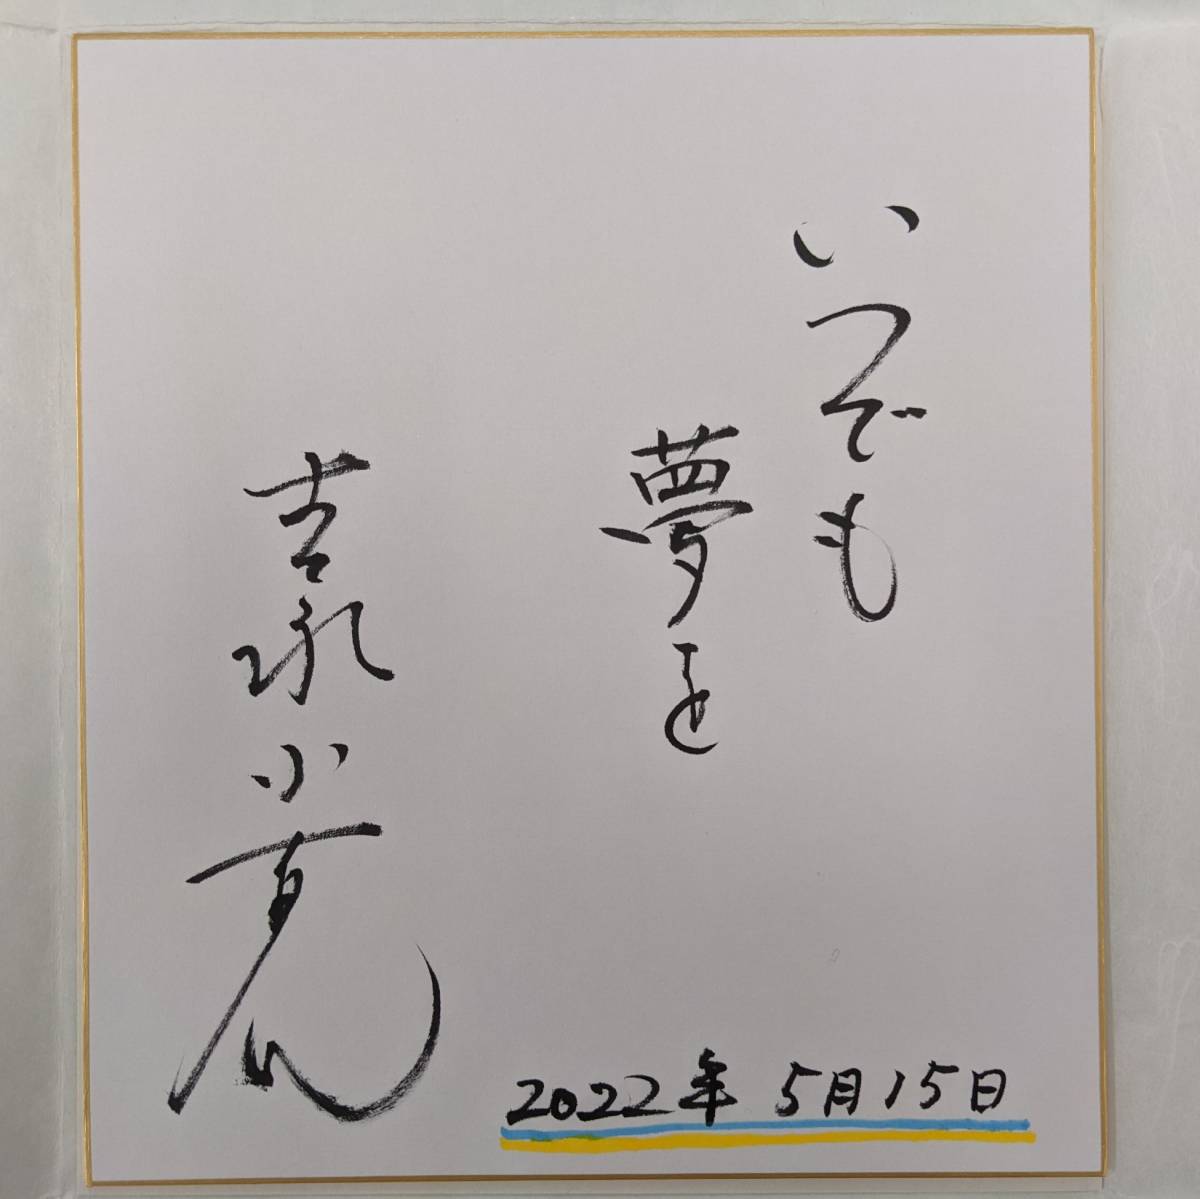 いつでも
夢を
吉永小百合
2022年 5月15日